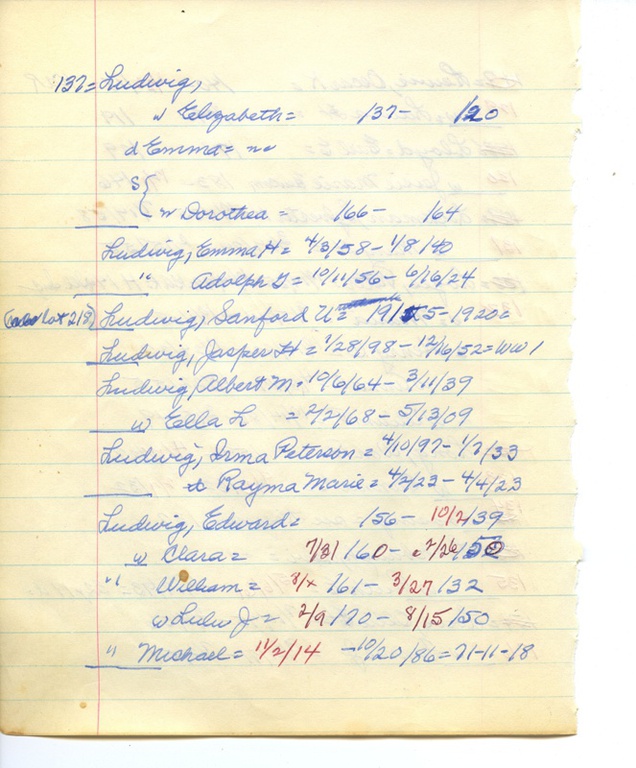 137= Ludwig,
w Elizabeth= /37- /20
d Emma= no
S{
w Dorothea= /66- /64
Ludwig, Emma H= 4/3/58-1/8/40
" Adolph G= 10/11/56-6/16/24
Lot 218) Ludwig, Sanford U= 1915-1920=
Ludwig, Jasper H= 1/28/98-12/16/52=WW1
Ludwig, Albert M= 10/6/64-3/11/39
w Ella L =2/2/68-5/13/09
Ludwig, Irma Peterson= 4/10/97-1/7/33
d Rayma Marie= 4/2/23-4/4/23
Ludwig, Edward= /56-10/2/39
w Clara= 7/31/60-
" William= 161-3/27/32
w Lulu J= 2/9/70-8/15/50
" Michael= 11/2/14 -10/20/86=71-11-18